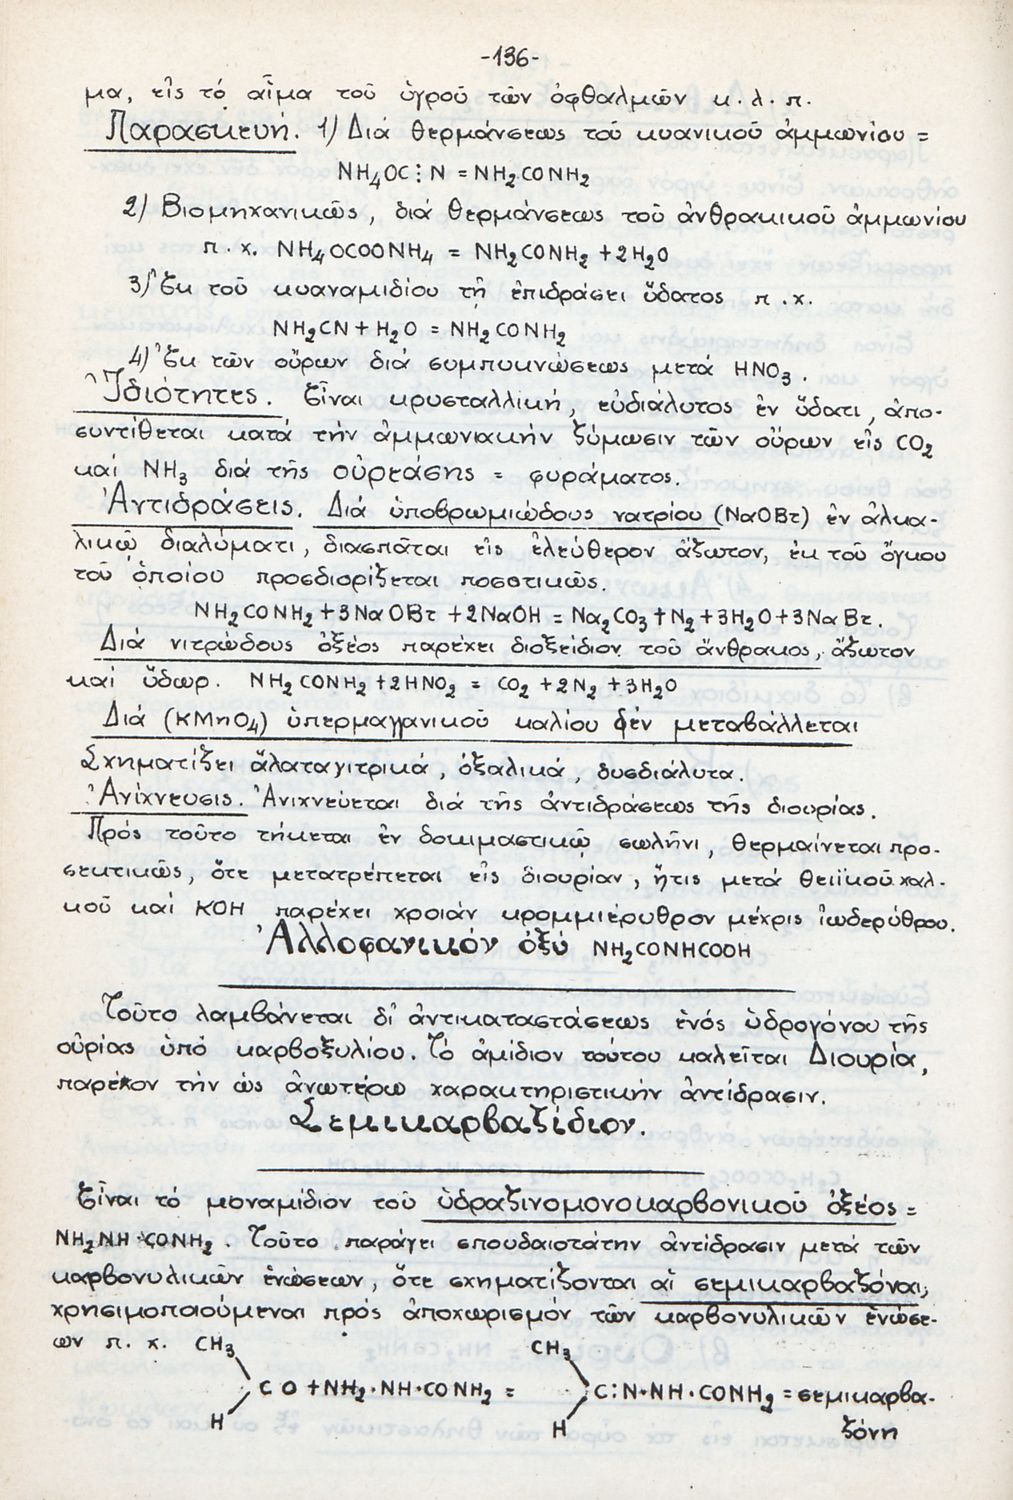 -136-
μα, εἰς τό αἷμα τοῦ ὑγροῦ τῶν ὀφθαλμῶν κ.λ.π.
Παρασκευή. 1) Διά θερμάνσεως τοῦ κυανικοῦ ἀμμωνίου =
NH₄OC⋮N = NH₂CONH₂
2) Βιομηχανικῶς, διά θερμάνσεως τοῦ ἀνθρακικοῦ ἀμμωνίου
π.χ. NH₄OCOONH₄ = NH₂CONH₂ + 2H₂O
3) Ἐκ τοῦ κυαναμιδίου τῇ ἐπιδράσει ὕδατος π.χ.
NH₂CN + H₂O = NH₂CONH₂
4) Ἐκ τῶν οὔρων διά συμπυκνώσεως μετά HNO₃.
Ἰδιότητες. Εἶναι κρυσταλλική, εὐδιάλυτος ἐν ὕδατι, ἀπο-
συντίθεται κατά τήν ἀμμωνιακήν ζύμωσιν τῶν οὔρων εἰς CO₂
καί NH₃ διά τῆς οὐρεάσης = φυράματος.
Ἀντιδράσεις. Διά ὑποβρωμιώδους νατρίου (NaOBr) ἐν ἀλκα-
λικῷ διαλύματι, διασπᾶται εἰς ἐλεύθερον ἄζωτον, ἐκ τοῦ ὄγκου
τοῦ ὁποίου προσδιορίζεται ποσοτικῶς.
NH₂CONH₂ + 3NaOBr + 2NaOH = Na₂CO₃ + N₂ + 3H₂O + 3NaBr.
Διά νιτρώδους ὀξέος παρέχει διοξείδιον τοῦ ἄνθρακος, ἄζωτον
καί ὕδωρ. NH₂CONH₂ + 2HNO₂ = CO₂ + 2N₂ + 3H₂O
Διά (KMnO₄) ὑπερμαγγανικοῦ καλίου δέν μεταβάλλεται
Σχηματίζει ἅλατα γιτρικά, ὀξαλικά, δυσδιάλυτα.
Ἀνίχνευσις. Ἀνιχνεύεται διά τῆς ἀντιδράσεως τῆς διουρίας.
Πρός τοῦτο τήκεται ἐν δοκιμαστικῷ σωλῆνι, θερμαίνεται προ-
σεκτικῶς, ὅτε μετατρέπεται εἰς διουρίαν, ἥτις μετά θειϊκοῦ χαλ-
κοῦ καί KOH παρέχει χροιάν κρομμιέρυθρον μέχρις ἰωδερύθρου.
Ἀλλοφανικόν ὀξύ NH₂CONHCOOH
Τοῦτο λαμβάνεται δι' ἀντικαταστάσεως ἑνός ὑδρογόνου τῆς
οὐρίας ὑπό καρβοξυλίου. Τό ἀμίδιον τούτου καλεῖται Διουρία,
παρέχον τήν ὡς ἀνωτέρω χαρακτηριστικήν ἀντίδρασιν.
Σεμικαρβαζίδιον.
Εἶναι τό μοναμίδιον τοῦ ὑδραζινομονοκαρβονικοῦ ὀξέος =
NH₂NH·CONH₂. Τοῦτο παράγει σπουδαιοτάτην ἀντίδρασιν μετά τῶν
καρβονυλικῶν ἑνώσεων, ὅτε σχηματίζονται αἱ σεμικαρβαζόναι,
χρησιμοποιούμεναι πρός ἀποχωρισμόν τῶν καρβονυλικῶν ἑνώσε-
ων π.χ. CH₃ CH₃
CO + NH₂·NH·CONH₂ = C:N·NH·CONH₂ = σεμικαρβα-
H H ζόνη